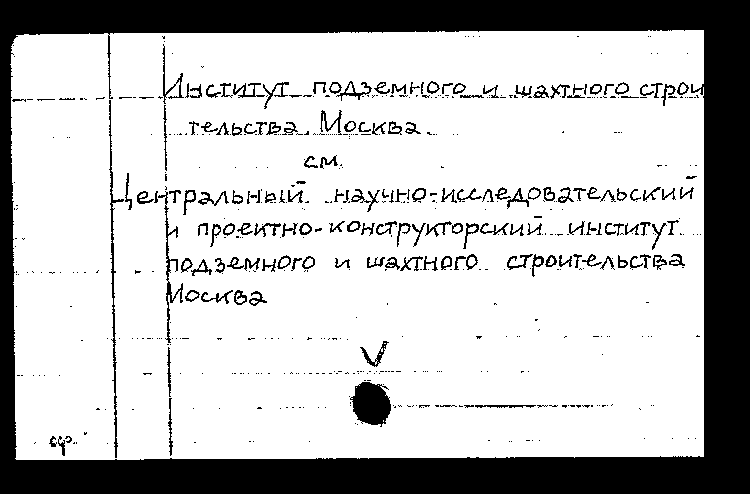 Институт подземного и шахтного строи
тельства. Москва.
см.
Центральный научно-исследовательский
и проектно-конструкторский институт
подземного и шахтного строительства
Москва
V